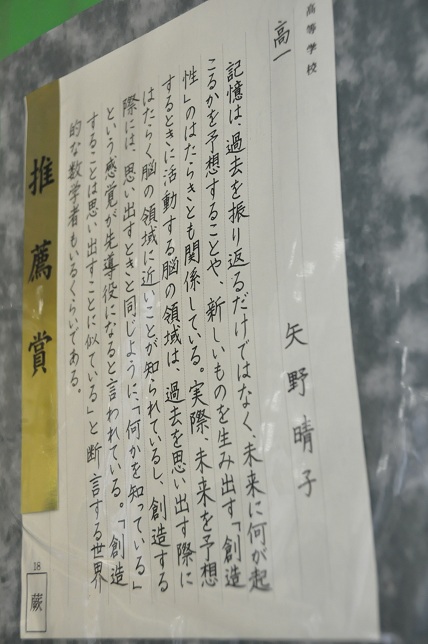 高等学校
高一
矢野晴子
記憶は、過去を振り返るだけではなく、未来に何が起
こるかを予想することや、新しいものを生み出す「創造
性」のはたらきとも関係している。実際、未来を予想
するときに活動する脳の領域は、過去を思い出す際に
はたらく脳の領域に近いことが知られているし、創造する
際には、思い出すときと同じように、「何かを知っている」
という感覚が先導役になると言われている。「創造
することは思い出すことに似ている」と断言する世界
的な数学者もいるくらいである。
推薦賞
18
蕨